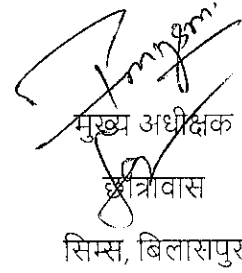 मुख्य अधीक्षक
छात्रावास
सिम्स, बिलासपुर